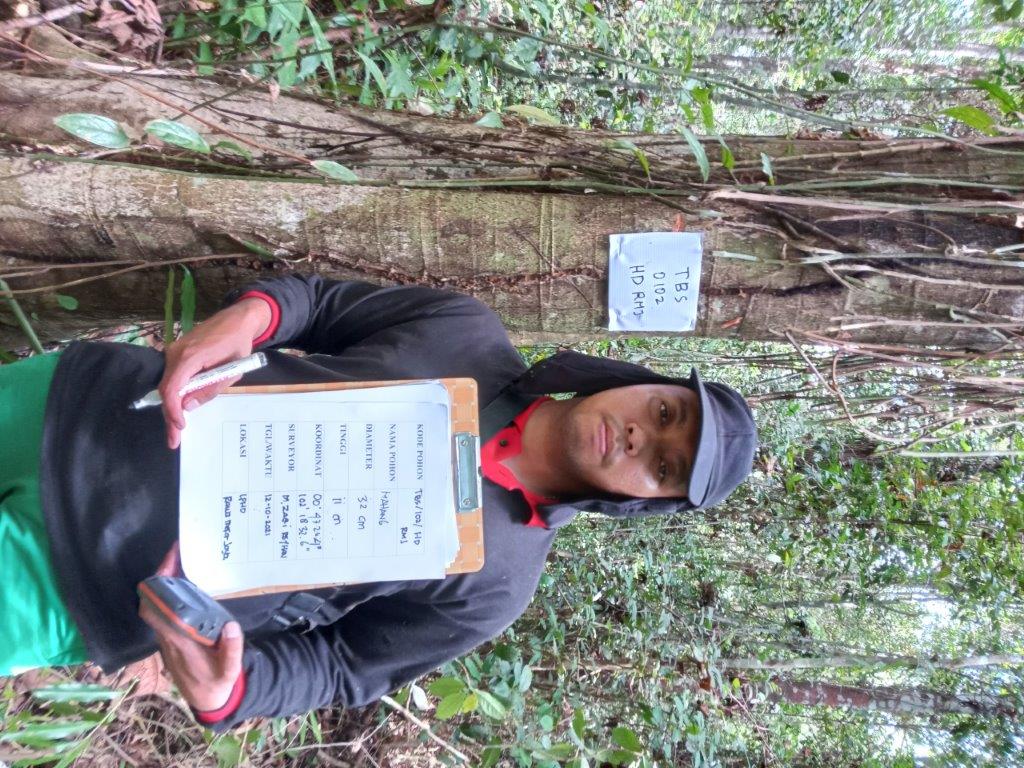 TBS
0102
HD RMJ
KODE POHON TBS/102/ HD
RMJ
NAMA POHON MAHANG
DIAMETER 32 cm
TINGGI 11 m
KOORDINAT 00° 43'
102° 18' 32.6"
SURVEYOR M. ZABI
TGL/WAKTU 12-10-2021
LOKASI LPHD
Rawa Jaya